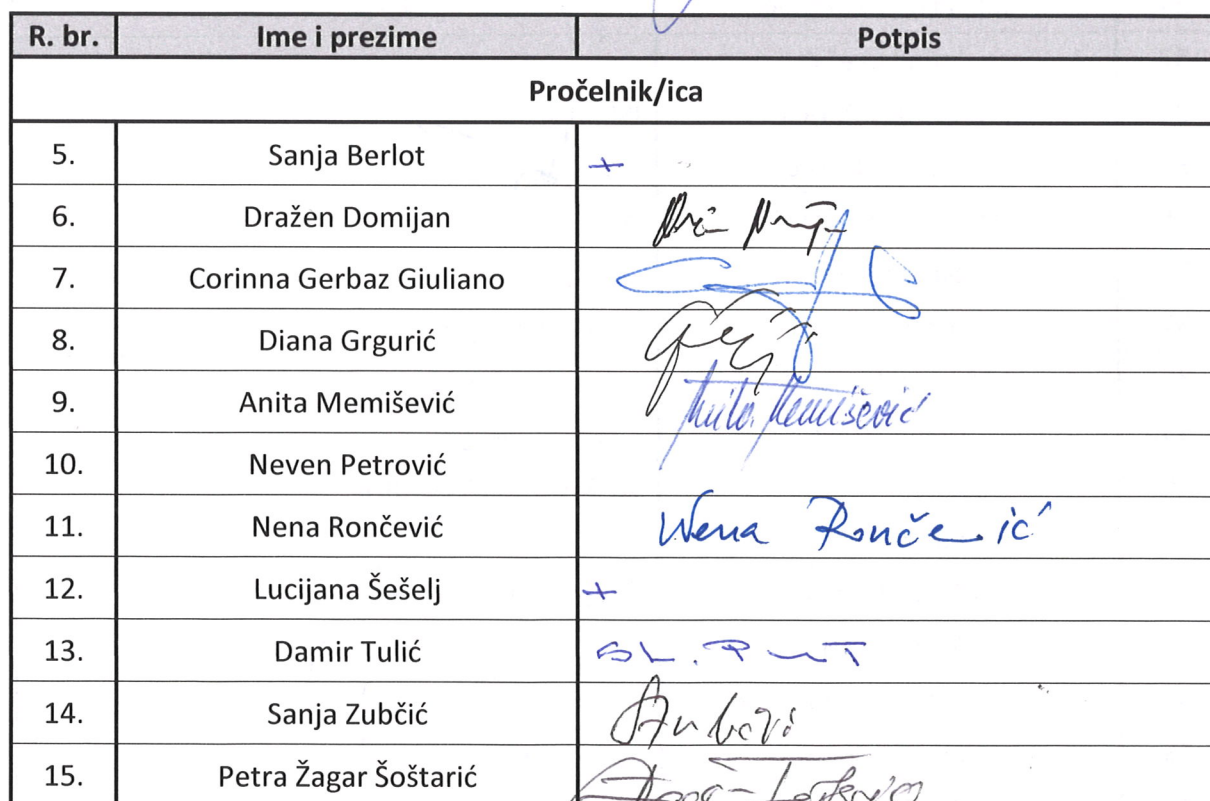 R. br. Ime i prezime Potpis
Pročelnik/ica
5. Sanja Berlot +
6. Dražen Domijan
7. Corinna Gerbaz Giuliano
8. Diana Grgurić
9. Anita Memišević Anita Memišević
10. Neven Petrović
11. Nena Rončević Nena Rončević
12. Lucijana Šešelj +
13. Damir Tulić SL. PUT
14. Sanja Zubčić
15. Petra Žagar Šoštarić